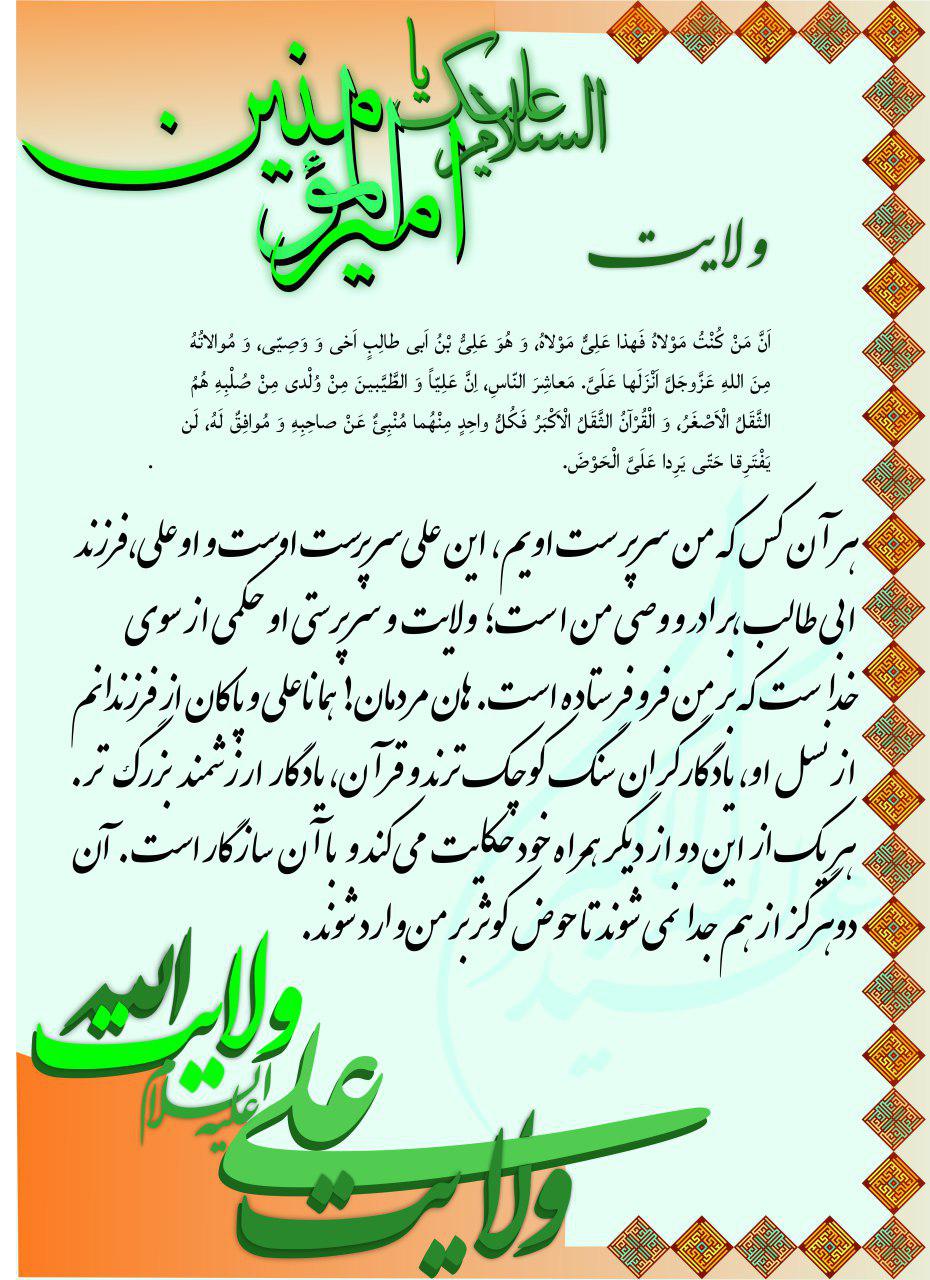 السلام علیک یا
امیرالمؤمنین
ولایت
اَنَّ مَنْ كُنْتُ مَوْلاهُ فَهذا عَلِىٌّ مَوْلاهُ، وَ هُوَ عَلِىُّ بْنُ اَبى طالِبٍ اَخى وَ وَصِيّى، وَ مُوالاتُهُ
مِنَ اللهِ عَزَّوجَلَّ اَنْزَلَها عَلَىَّ. مَعاشِرَ النّاسِ، اِنَّ عَلِيّاً وَ الطَّيَّبينَ مِنْ وُلْدى مِنْ صُلْبِهِ هُمُ
الثَّقَلُ الْاَصْغَرُ، وَ الْقُرْآنُ الثَّقَلُ الْاَكْبَرُ فَكُلُّ واحِدٍ مِنْهُما مُنْبِئٌ عَنْ صاحِبِهِ وَ مُوافِقٌ لَهُ، لَن
يَفْتَرِقا حَتّى يَرِدا عَلَىَّ الْحَوْضَ. .
هر آن کس که من سرپرست اویم، این علی سرپرست اوست و او علی،فرزند
ابی طالب،برادر و وصی من است؛ ولایت و سرپرستی او حکمی از سوی
خداست که بر من فرو فرستاده است. هان مردمان! همانا علی و پاکان از فرزندانم
از نسل او، یادگار گران سنگ کوچک ترند و قرآن، یادگار ارزشمند بزرگ تر.
هر یک از این دو از دیگر همراه خود حکایت می کند و با آن سازگار است. آن
دو هرگز از هم جدا نمی شوند تا حوض کوثر بر من وارد شوند.
ولایت الله
ولایت علی
علیه السلام